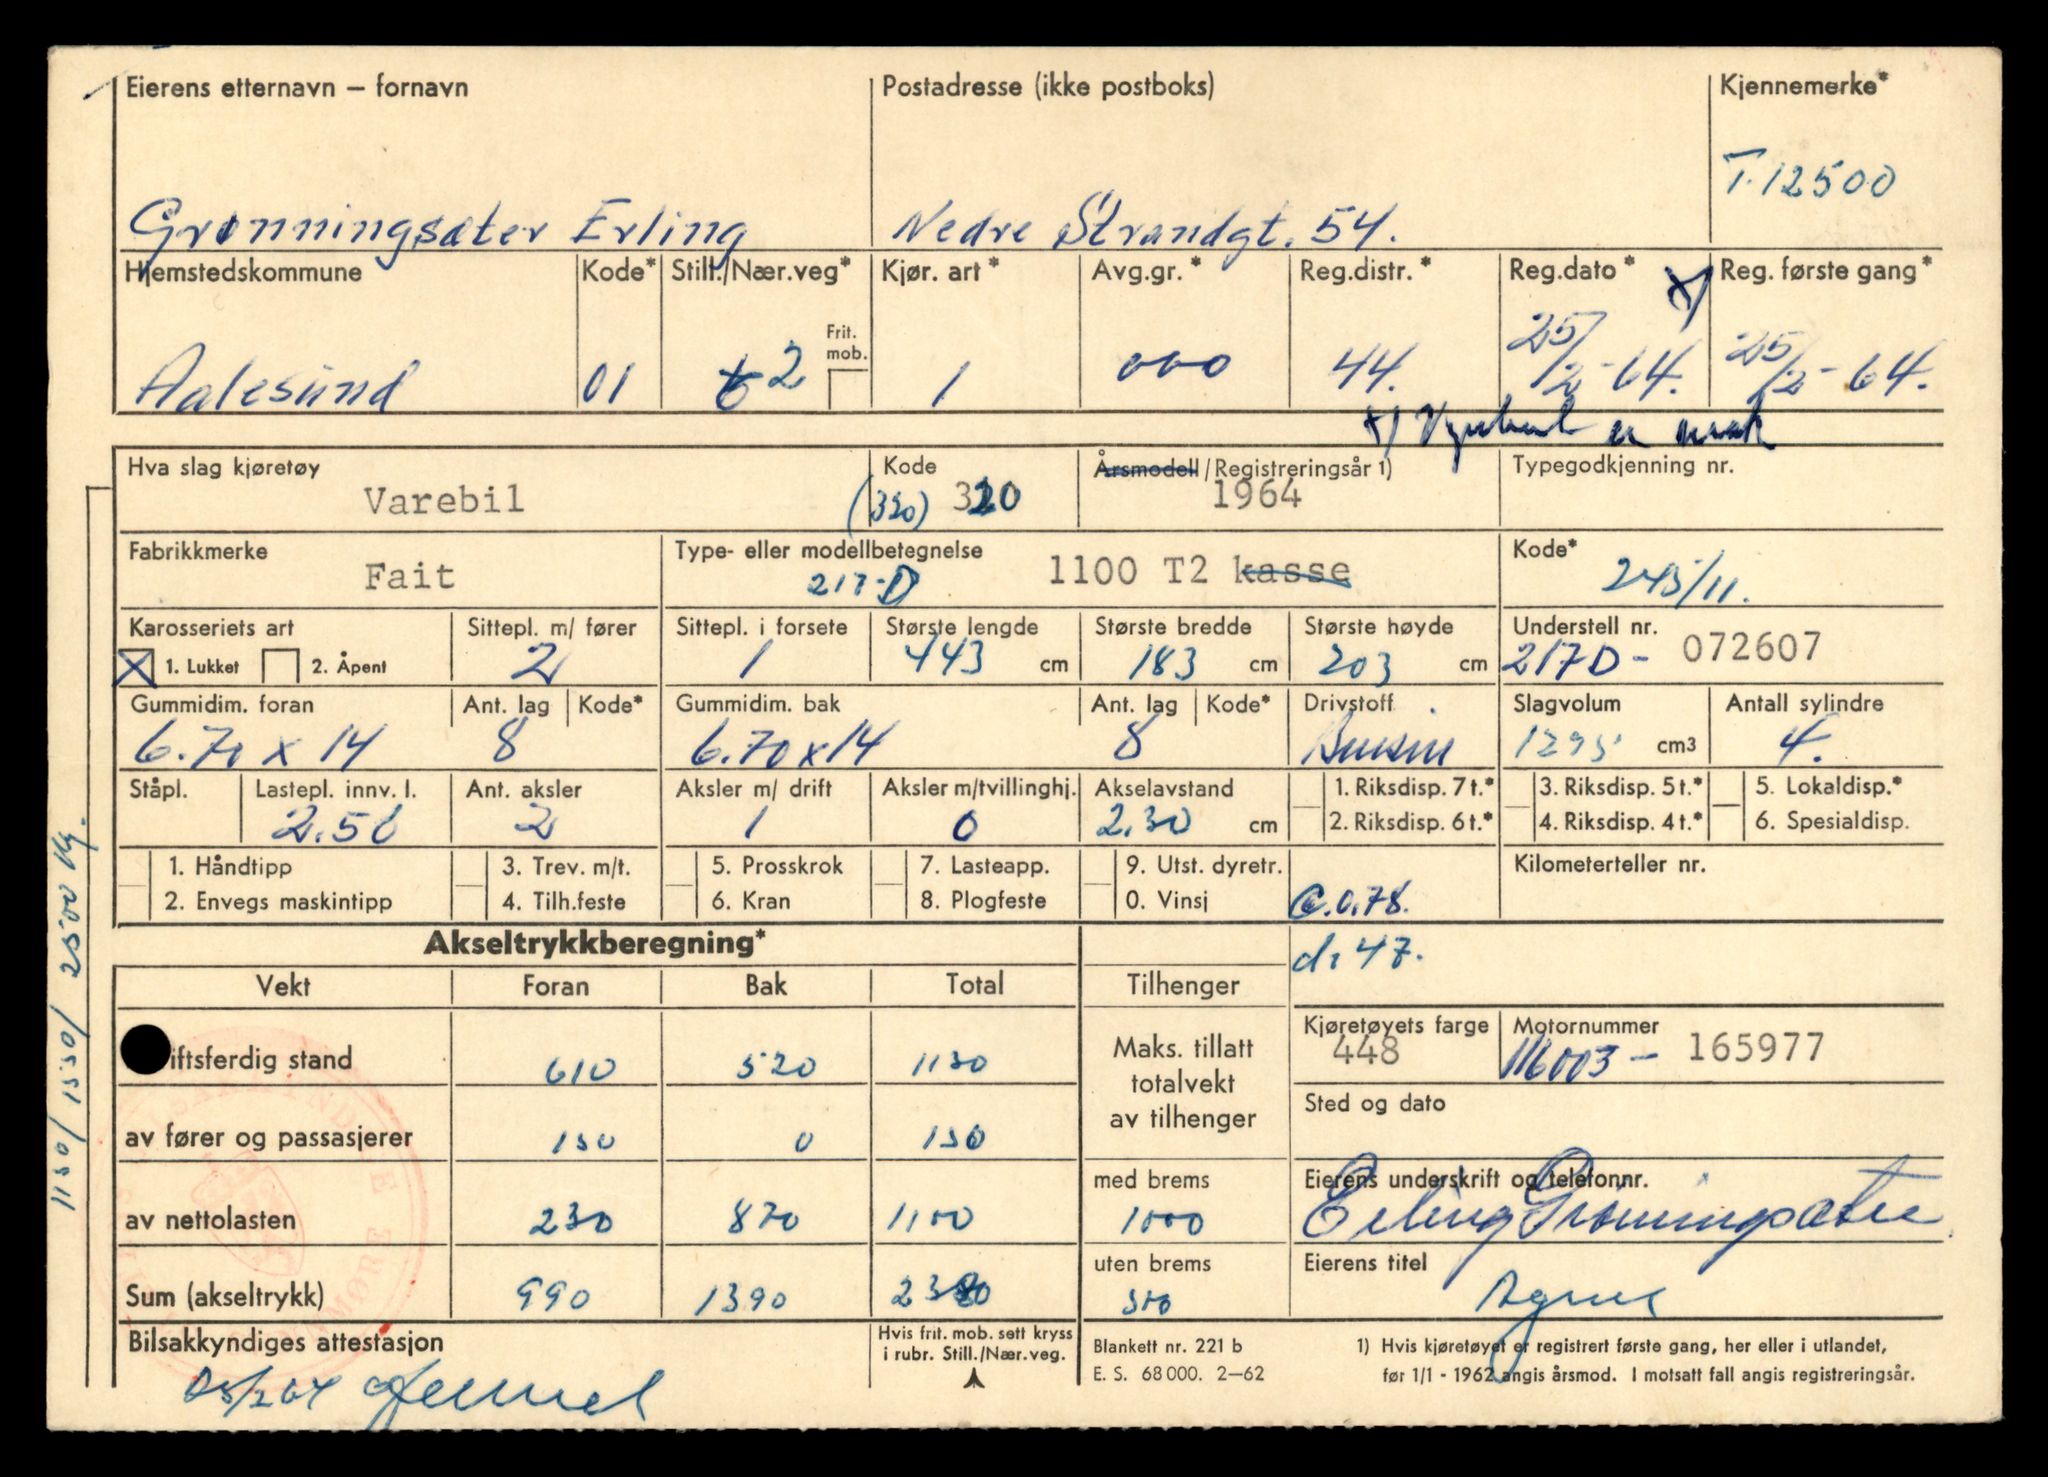 Eierens etternavn – fornavn Postadresse (ikke postboks) Kjennemerke*
T. 12500
Grønningsæter Erling Nedre Strandgt. 54.
Hjemstedskommune Kode* Still./Nær.veg* Kjør. art* Avg.gr.* Reg.distr.* Reg.dato* x) Reg. første gang*
Frit. mob.
Aalesund 01 2 1 000 44. 25/2-64. 25/2-64.
x)
Hva slag kjøretøy Kode Årsmodell/Registreringsår 1) Typegodkjenning nr.
Varebil (320) 320 1964
Fabrikkmerke Type- eller modellbetegnelse Kode*
Fait 217-D 1100 T2 kasse 245/11.
Karosseriets art Sittepl. m/ fører Sittepl. i forsete Største lengde Største bredde Største høyde Understell nr.
X 1. Lukket 2. Åpent 2 1 443 cm 183 cm 203 cm 217D - 072607
Gummidim. foran Ant. lag Kode* Gummidim. bak Ant. lag Kode* Drivstoff Slagvolum Antall sylindre
6.70 x 14 8 6.70 x 14 8 Bensin 1295 cm3 4.
Ståpl. Lastepl. innv. l. Ant. aksler Aksler m/ drift Aksler m/tvillinghj. Akselavstand 1. Riksdisp. 7 t.* 3. Riksdisp. 5 t.* 5. Lokaldisp.*
2.50 2 1 0 2.30 cm 2. Riksdisp. 6 t.* 4. Riksdisp. 4 t.* 6. Spesialdisp.
1. Håndtipp 3. Trev. m/t. 5. Prosskrok 7. Lasteapp. 9. Utst. dyretr. Kilometerteller nr.
2. Envegs maskintipp 4. Tilh.feste 6. Kran 8. Plogfeste 0. Vinsj c. 0.78.
Akseltrykkberegning* d. 47.
Vekt Foran Bak Total Tilhenger
Kjøretøyets farge Motornummer
iftsferdig stand 610 520 1130 Maks. tillatt 448 116003 - 165977
totalvekt
Sted og dato
av fører og passasjerer 150 0 150 av tilhenger
med brems Eierens underskrift og telefonnr.
av nettolasten 230 870 1100 1000 Erling Grønningsæter
uten brems Eierens titel
Sum (akseltrykk) 990 1390 2380 500
Bilsakkyndiges attestasjon Hvis frit. mob. sett kryss i rubr. Still./Nær.veg. Blankett nr. 221 b 1) Hvis kjøretøyet er registrert første gang, her eller i utlandet,
E. S. 68 000. 2–62 før 1/1 - 1962 angis årsmod. I motsatt fall angis registreringsår.
25/2 64
1150/1550/2500 kg.